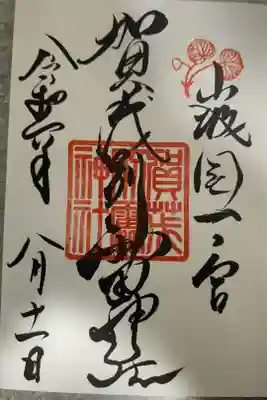 山城国一ノ宮
賀茂別雷神社
賀茂
別雷
神社
令和
八月十一日